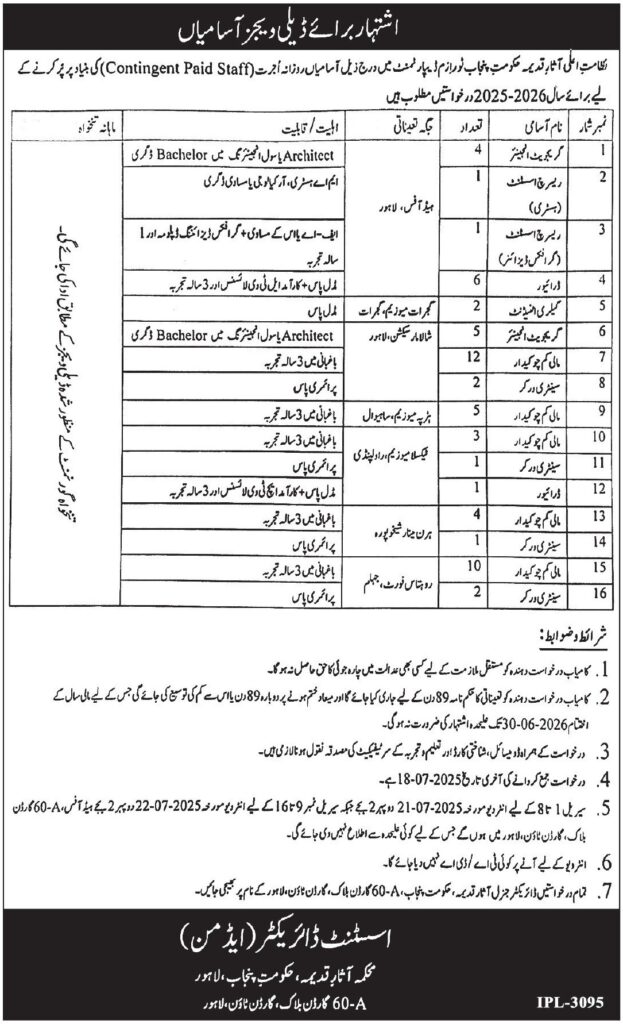 اشتہار برائے ڈیلی ویجز آسامیاں
نظامت اعلیٰ آثار قدیمہ حکومتِ پنجاب ٹورازم ڈیپارٹمنٹ میں درج ذیل آسامیاں روزانہ اُجرت (Contingent Paid Staff) کی بنیاد پر پُر کرنے کے
لیے برائے سال 2026-2025 درخواستیں مطلوب ہیں
نمبر شمار نام آسامی تعداد جگہ تعیناتی اہلیت / قابلیت ماہانہ تنخواہ
1 گریجویٹ انجینئر 4 ہیڈ آفس، لاہور Architect یا سول انجینئرنگ میں Bachelor ڈگری تنخواہ گورنمنٹ کے منظور شدہ ڈیلی ویجز کے مطابق ادا کی جائے گی۔
2 ریسرچ اسسٹنٹ (ہسٹری) 1 ایم اے ہسٹری، آرکیالوجی یا مساوی ڈگری
3 ریسرچ اسسٹنٹ (گرافکس ڈیزائنر) 1 ایف-اے یا اس کے مساوی + گرافکس ڈیزائننگ ڈپلومہ اور 1 سالہ تجربہ
4 ڈرائیور 6 مڈل پاس + کارآمد ایل ٹی وی لائسنس اور 3 سالہ تجربہ
5 گیلری اٹنڈنٹ 2 گجرات میوزیم، گجرات مڈل پاس
6 گریجویٹ انجینئر 5 شالامار سیکشن، لاہور Architect یا سول انجینئرنگ میں Bachelor ڈگری
7 مالی کم چوکیدار 12 باغبانی میں 3 سالہ تجربہ
8 سینٹری ورکر 2 پرائمری پاس
9 مالی کم چوکیدار 5 ہڑپہ میوزیم، ساہیوال باغبانی میں 3 سالہ تجربہ
10 مالی کم چوکیدار 3 ٹیکسلا میوزیم، راولپنڈی باغبانی میں 3 سالہ تجربہ
11 سینٹری ورکر 1 پرائمری پاس
12 ڈرائیور 1 مڈل پاس + کارآمد ایچ ٹی وی لائسنس اور 3 سالہ تجربہ
13 مالی کم چوکیدار 4 ہرن مینار شیخوپورہ باغبانی میں 3 سالہ تجربہ
14 سینٹری ورکر 1 پرائمری پاس
15 مالی کم چوکیدار 10 روہتاس فورٹ، جہلم باغبانی میں 3 سالہ تجربہ
16 سینٹری ورکر 2 پرائمری پاس
شرائط و ضوابط:
1. کامیاب درخواست دہندہ کو مستقل ملازمت کے لیے کسی بھی عدالت میں چارہ جوئی کا حق حاصل نہ ہوگا۔
2. کامیاب درخواست دہندہ کو تعیناتی کا حکم نامہ 89 دن کے لیے جاری کیا جائے گا اور میعاد ختم ہونے پر دوبارہ 89 دن یا اس سے کم کی توسیع کی جائے گی جس کے لیے مالی سال کے
اختتام 30-06-2026 تک علیحدہ اشتہار کی ضرورت نہ ہوگی۔
3. درخواست کے ہمراہ ڈومیسائل، شناختی کارڈ اور تعلیم و تجربہ کے سرٹیفکیٹ کی مصدقہ نقول ہونا لازمی ہیں۔
4. درخواست جمع کروانے کی آخری تاریخ 18-07-2025 ہے۔
5. سیریل 1 تا 8 کے لیے انٹرویو مورخہ 21-07-2025 دوپہر 2 بجے جبکہ سیریل نمبر 9 تا 16 کے لیے انٹرویو مورخہ 22-07-2025 دوپہر 2 بجے ہیڈ آفس، 60-A گارڈن
بلاک، گارڈن ٹاؤن، لاہور میں ہوں گے جس کے لیے کوئی علیحدہ سے اطلاع نہیں دی جائے گی۔
6. انٹرویو کے لیے آنے پر کوئی ٹی اے / ڈی اے نہیں دیا جائے گا۔
7. تمام درخواستیں ڈائریکٹر جنرل آثار قدیمہ، حکومت پنجاب، 60-A گارڈن بلاک، گارڈن ٹاؤن، لاہور کے نام پر بھیجی جائیں۔
اسسٹنٹ ڈائریکٹر (ایڈمن)
محکمہ آثار قدیمہ، حکومتِ پنجاب، لاہور
60-A گارڈن بلاک، گارڈن ٹاؤن، لاہور
IPL-3095